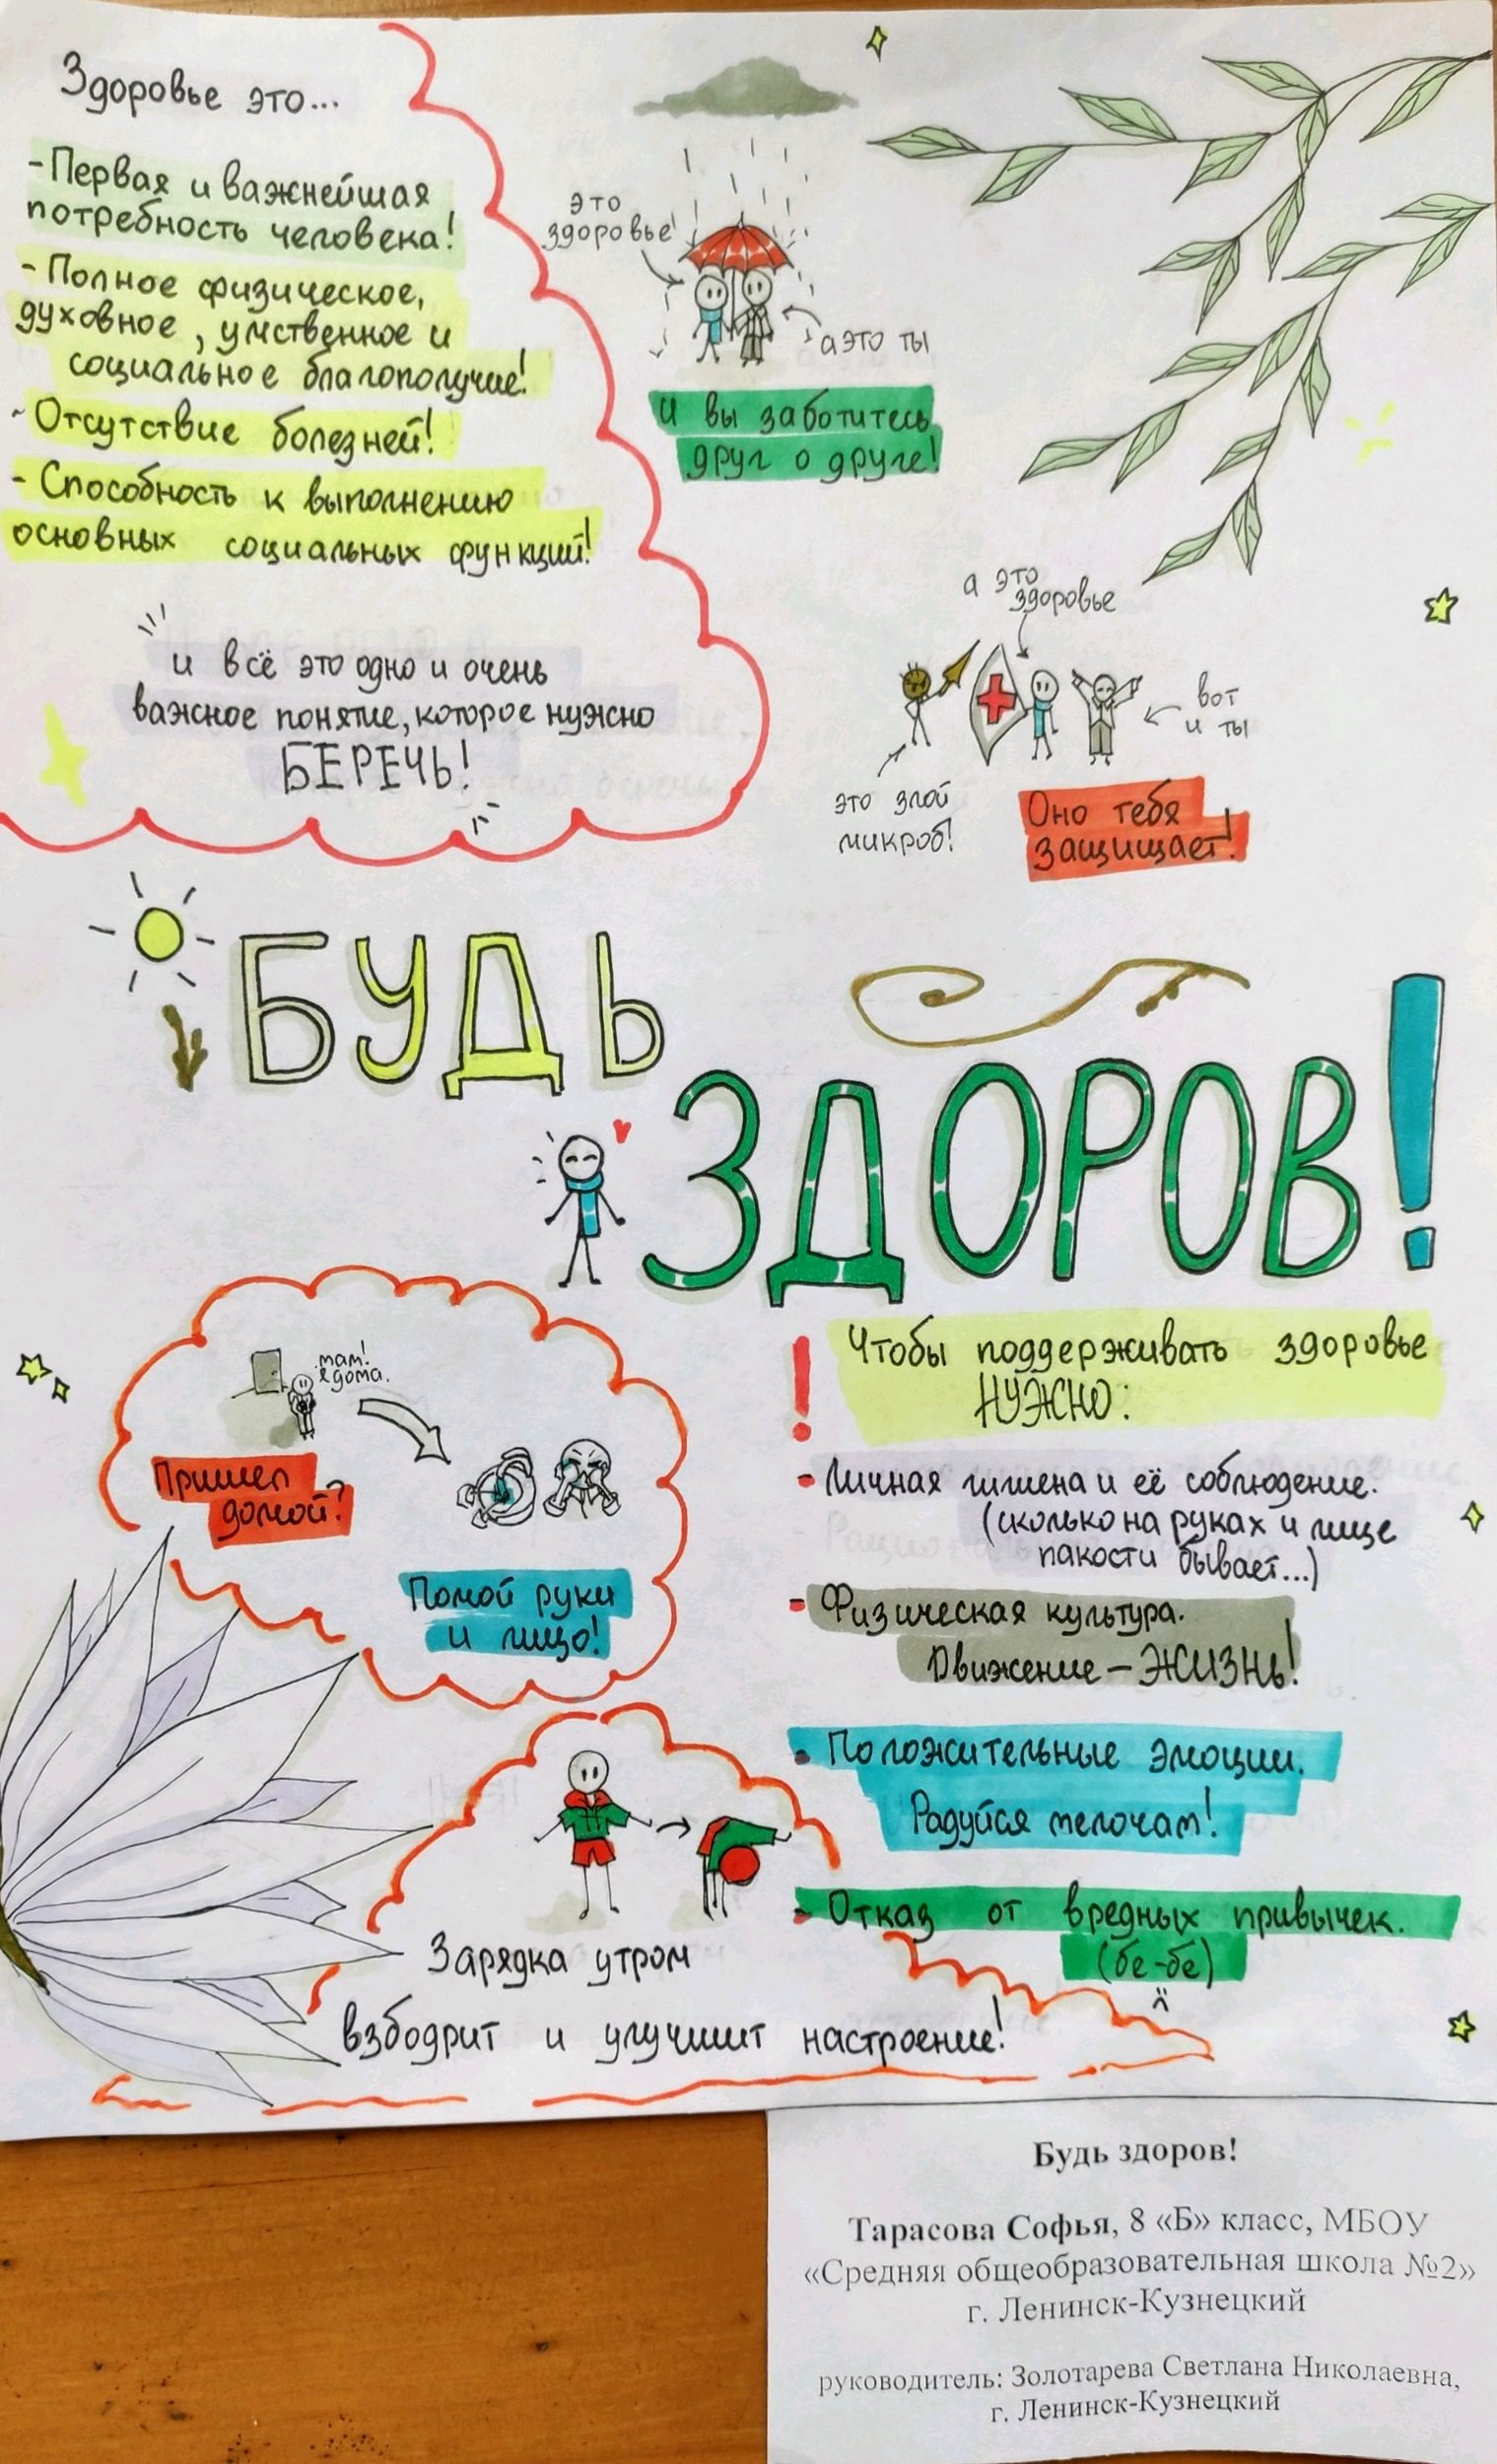 Здоровье это...
-Первая и важнейшая
потребность человека!
-Полное физическое,
духовное, умственное и
социальное благополучие!
-Отсутствие болезней!
-Способность к выполнению
основных социальных функций!
и всё это одно и очень
важное понятие, которое нужно
БЕРЕЧЬ!
это
здоровье!
а это ты
и вы заботитесь
друг о друге!
а это
здоровье
вот
и ты
это злой
микроб!
Оно тебя
защищает!
БУДЬ
ЗДОРОВ!
мам!
я дома.
Пришел
домой?
Помой руки
и лицо!
Зарядка утром
взбодрит и улучшит настроение!
! Чтобы поддерживать здоровье
НУЖНО:
- Личная гигиена и её соблюдение.
(сколько на руках и лице
пакости бывает...)
- Физическая культура.
Движение – ЖИЗНЬ!
- Положительные эмоции.
Радуйся мелочам!
- Отказ от вредных привычек.
(бе-бе)
Будь здоров!
Тарасова Софья, 8 «Б» класс, МБОУ
«Средняя общеобразовательная школа №2»
г. Ленинск-Кузнецкий
руководитель: Золотарева Светлана Николаевна,
г. Ленинск-Кузнецкий